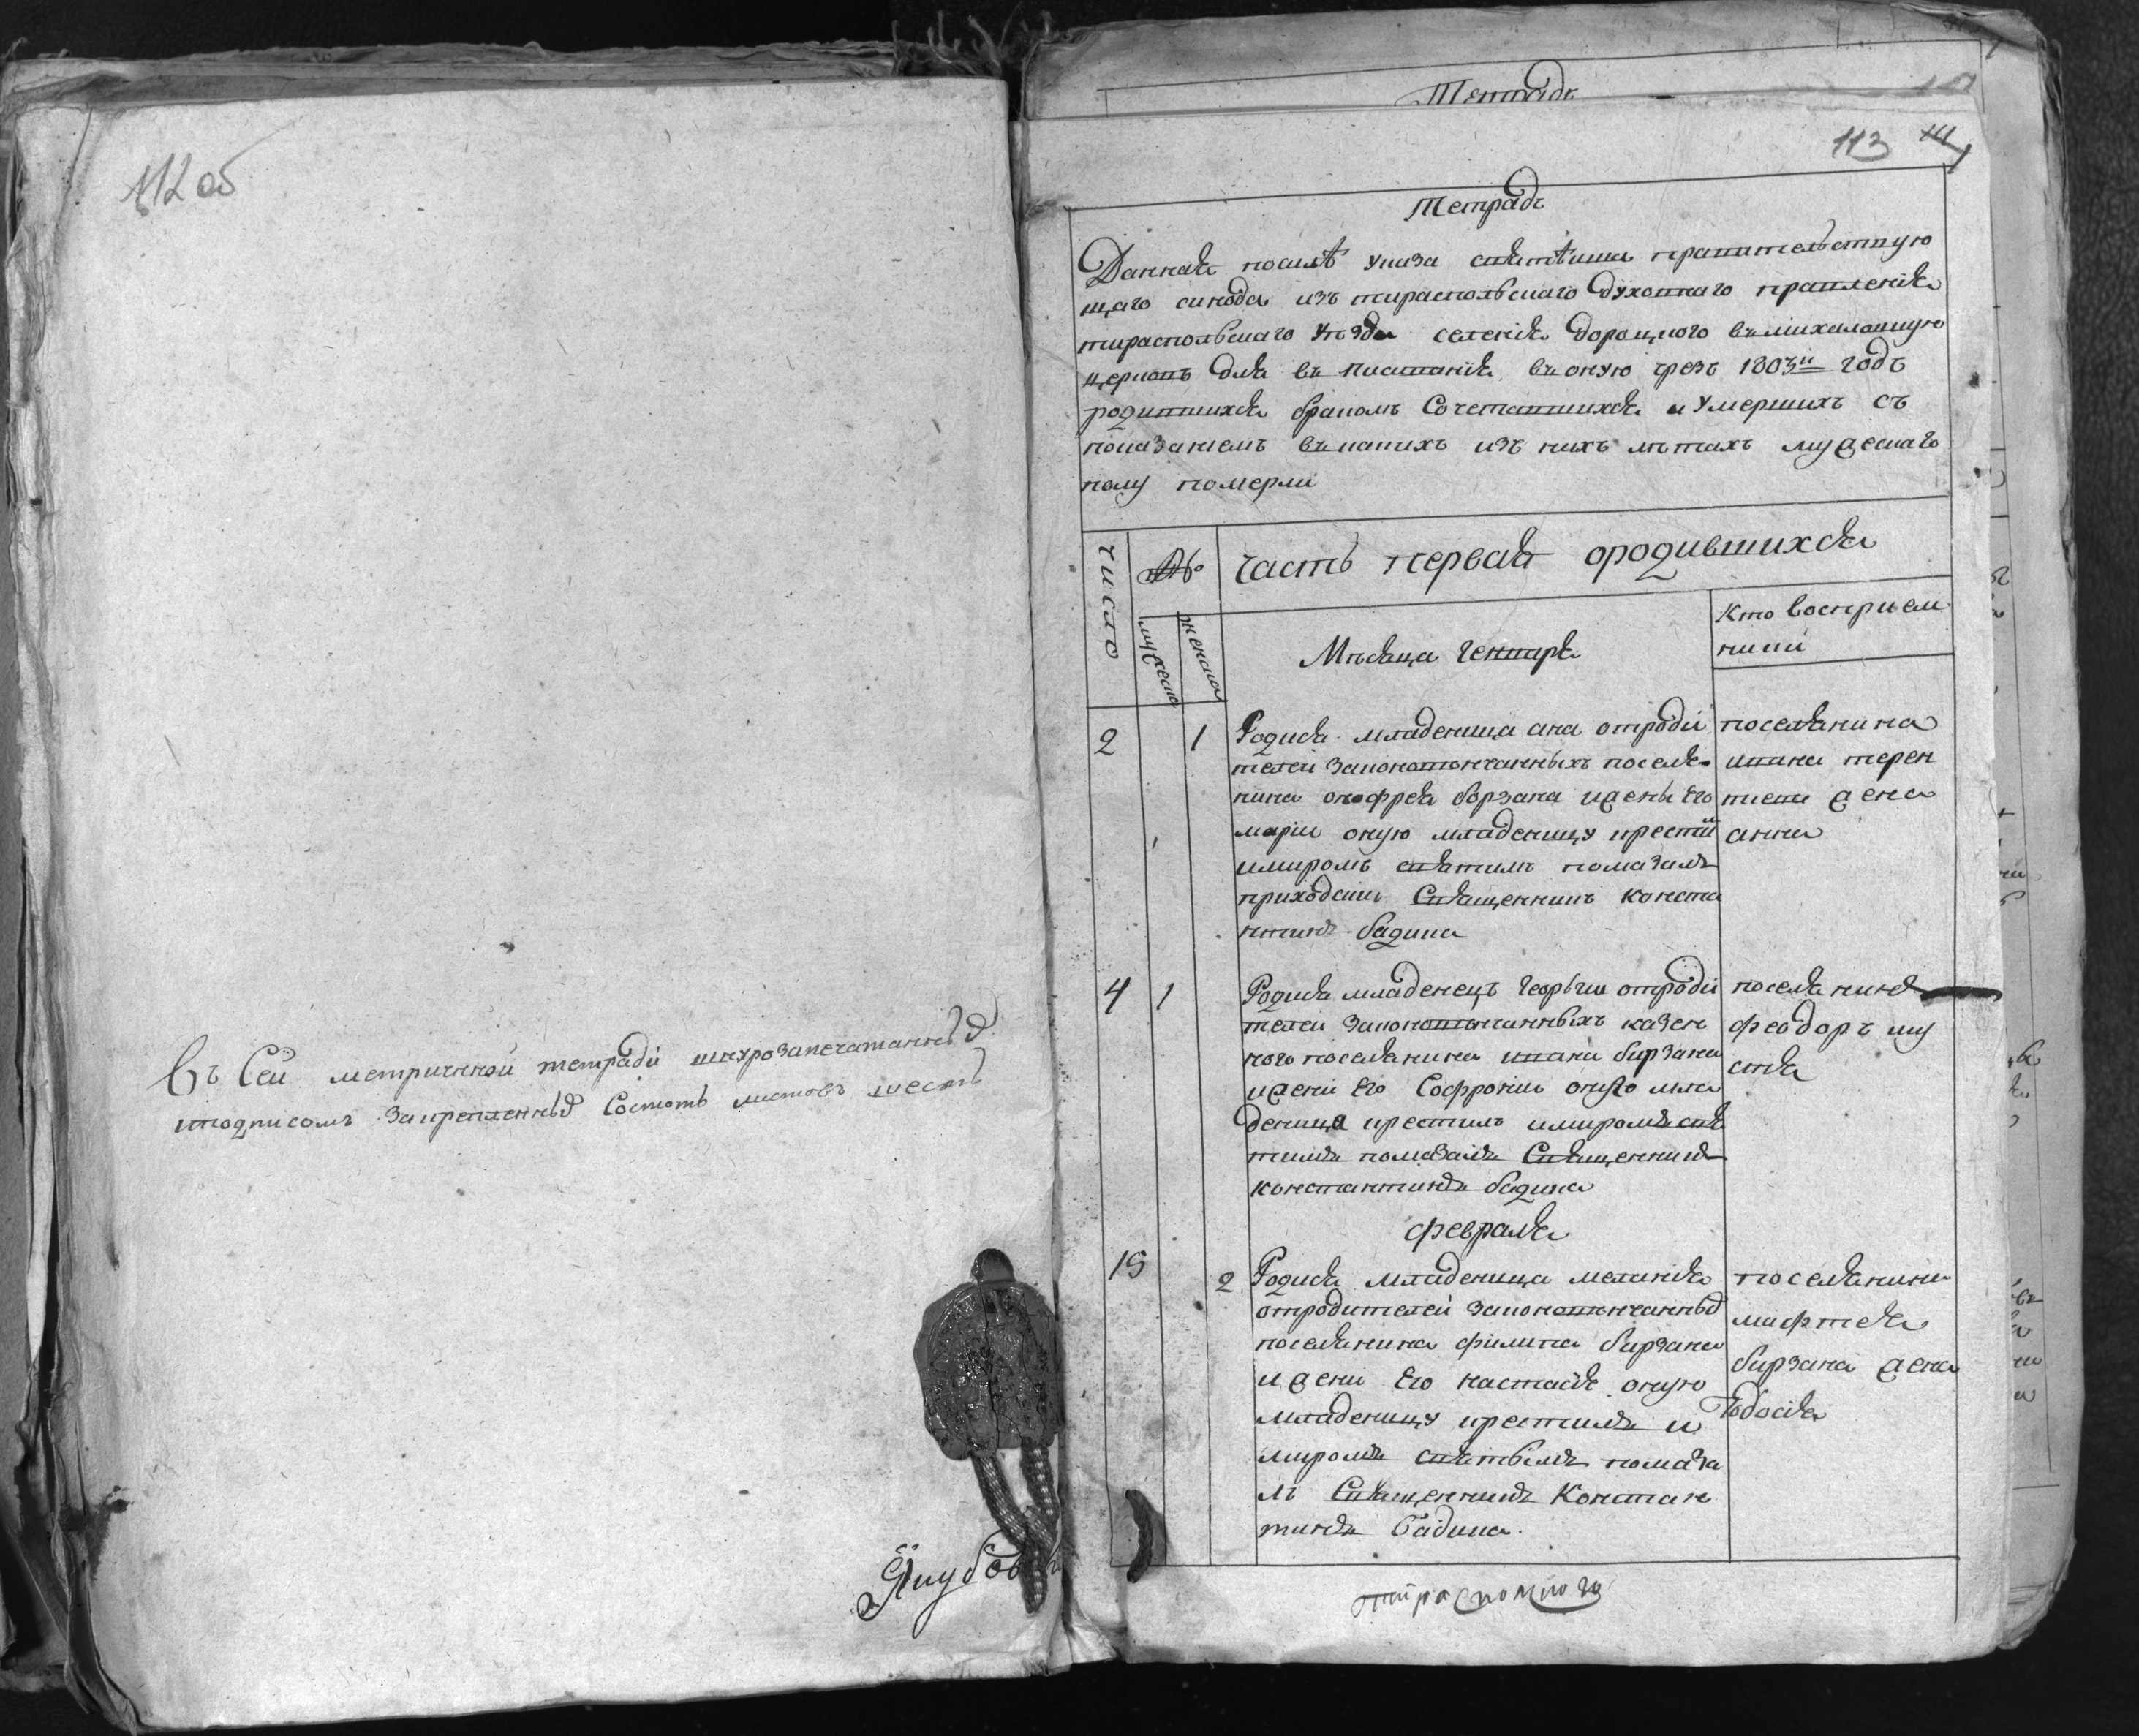 112 об
Въ Сей метричной тетради шнурозапечатанной
иподписомъ закрепленной Состоитъ листовъ шесть
Якубов
Тетрадь
113
Тетрадь
Данная посилѣ указа святѣйша правительствую
щаго синода изъ тираспольскаго духовнаго правления
тираспольскаго уѣзда селения дороцкого въмихаловскую
церковь для въ писания въоную чрезъ 1803й годъ
родившихся бракомъ Сочетавшихся и Умершихъ съ
показанiемъ въкакихъ изъ нихъ лѣтахъ мужескаго
полу померли
число
№
часть первая ородившихся
мужеска
женска
Мѣсяца генваря
Кто восприем
ники
2
1
Родися младеница ана отроди
телей законовѣнчанныхъ поселя
нина онофрея борзана ижены Его
марiи оную младеницу крестий
имиромъ святимъ помазалъ
приходски Священникъ конста
нтинъ бадика
поселянина
ивана терен
тиева жена
анна
4
1
Родися младенецъ георъги отроди
телей законовѣнчанныхъ казен
ного поселянина ивана бирзана
ижени Его Софронiи оного мла
деница крестилъ имиромъ свя
тимъ помазалъ Священникъ
константинъ бадика
поселянинъ
феодоръ му
стя
февраля
19
2
Родися младеница мелания
отродителей законовѣнчанныхъ
поселянина филипа бирзана
ижени Его настасiе оную
младеницу крестилъ и
миромъ святымъ помаза
лъ Священникъ Констан
тинъ бадика.
поселянина
мафтея
бирзана жена
Тодосiя